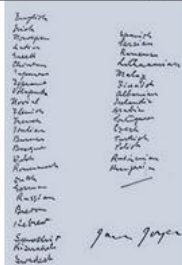 English
Irish
Norwegian
Latin
Greek
Chinese
Japanese
Esperanto
Volapuk
Novial
Flemish
French
Italian
Burmese
Basque
Welsh
Roumansch
Dutch
German
Russian
Breton
Hebrew
Sanskrit
Swedish
Spanish
Persian
Rumanian
Lithuanian
Malay
Finnish
Albanian
Icelandic
Arabic
Portuguese
Czech
Turkish
Polish
Ruthenian
Hungarian
James Joyce